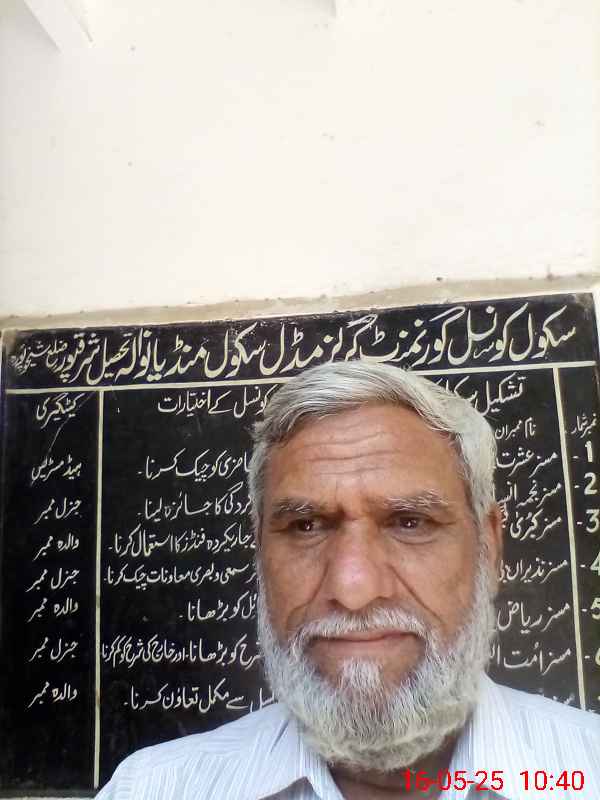 سکول کونسل گورنمنٹ گرلز مڈل سکول منڈیانوالہ تحصیل شرقپور ضلع شیخوپورہ
نمبر شمار
تشکیل
کونسل کے اختیارات
کیٹیگری
نام ممبران
1- مسز عشرت حاضری کو چیک کرنا۔ ہیڈ مسٹریس
2- مسز نجمہ کردگی کا جائزہ لینا۔ جنرل ممبر
3- مسز کبریٰ جاری کردہ فنڈز کا استعمال کرنا۔ والدہ ممبر
4- مسز نذیراں بی سمعی و بصری معاونات چیک کرنا۔ جنرل ممبر
5- مسز ریاض کو بڑھانا۔ والدہ ممبر
مسز امت شرح کو بڑھانا۔ اور خارج کی شرح کو کم کرنا جنرل ممبر
سے مکمل تعاون کرنا۔ والدہ ممبر
16-05-25 10:40